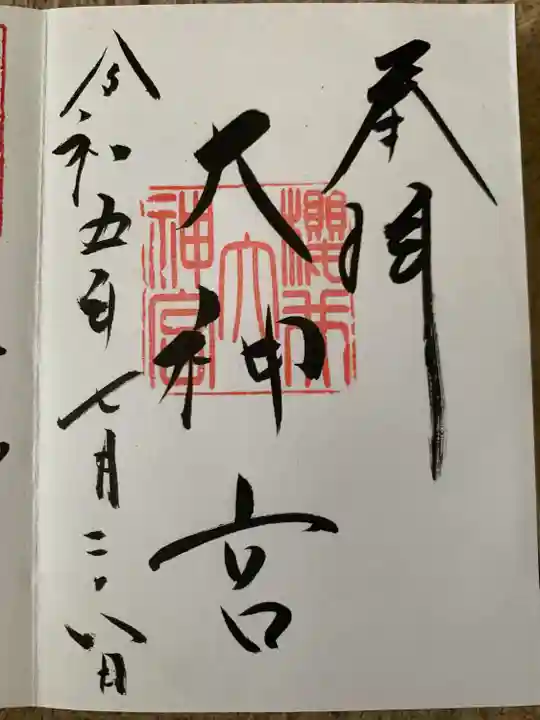 奉拝
大神宮
大
神宮
令和五年七月二十八日